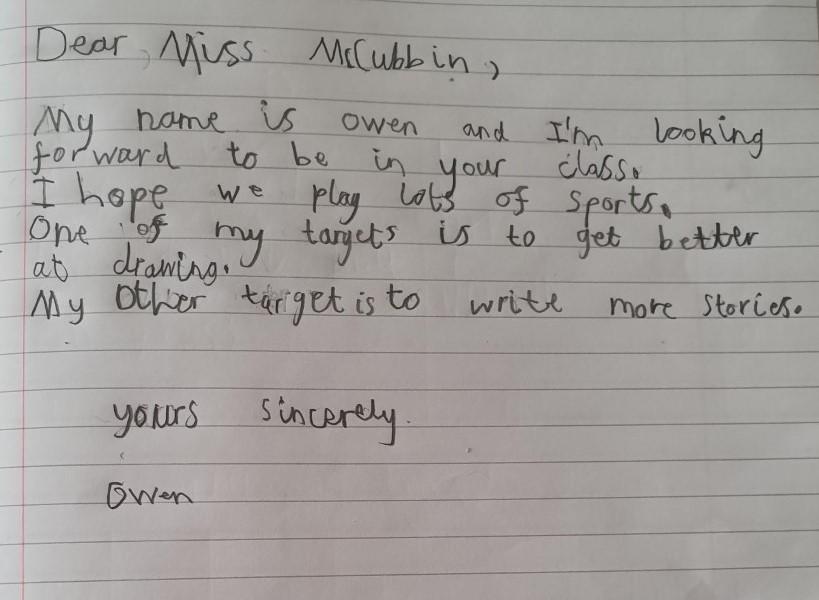 Dear, Miss McCubbin,
My name is owen and I'm looking
forward to be in your class.
I hope we play lots of sports.
One of my targets is to get better
at drawing.
My other target is to write more stories.
yours sincerely.
Owen